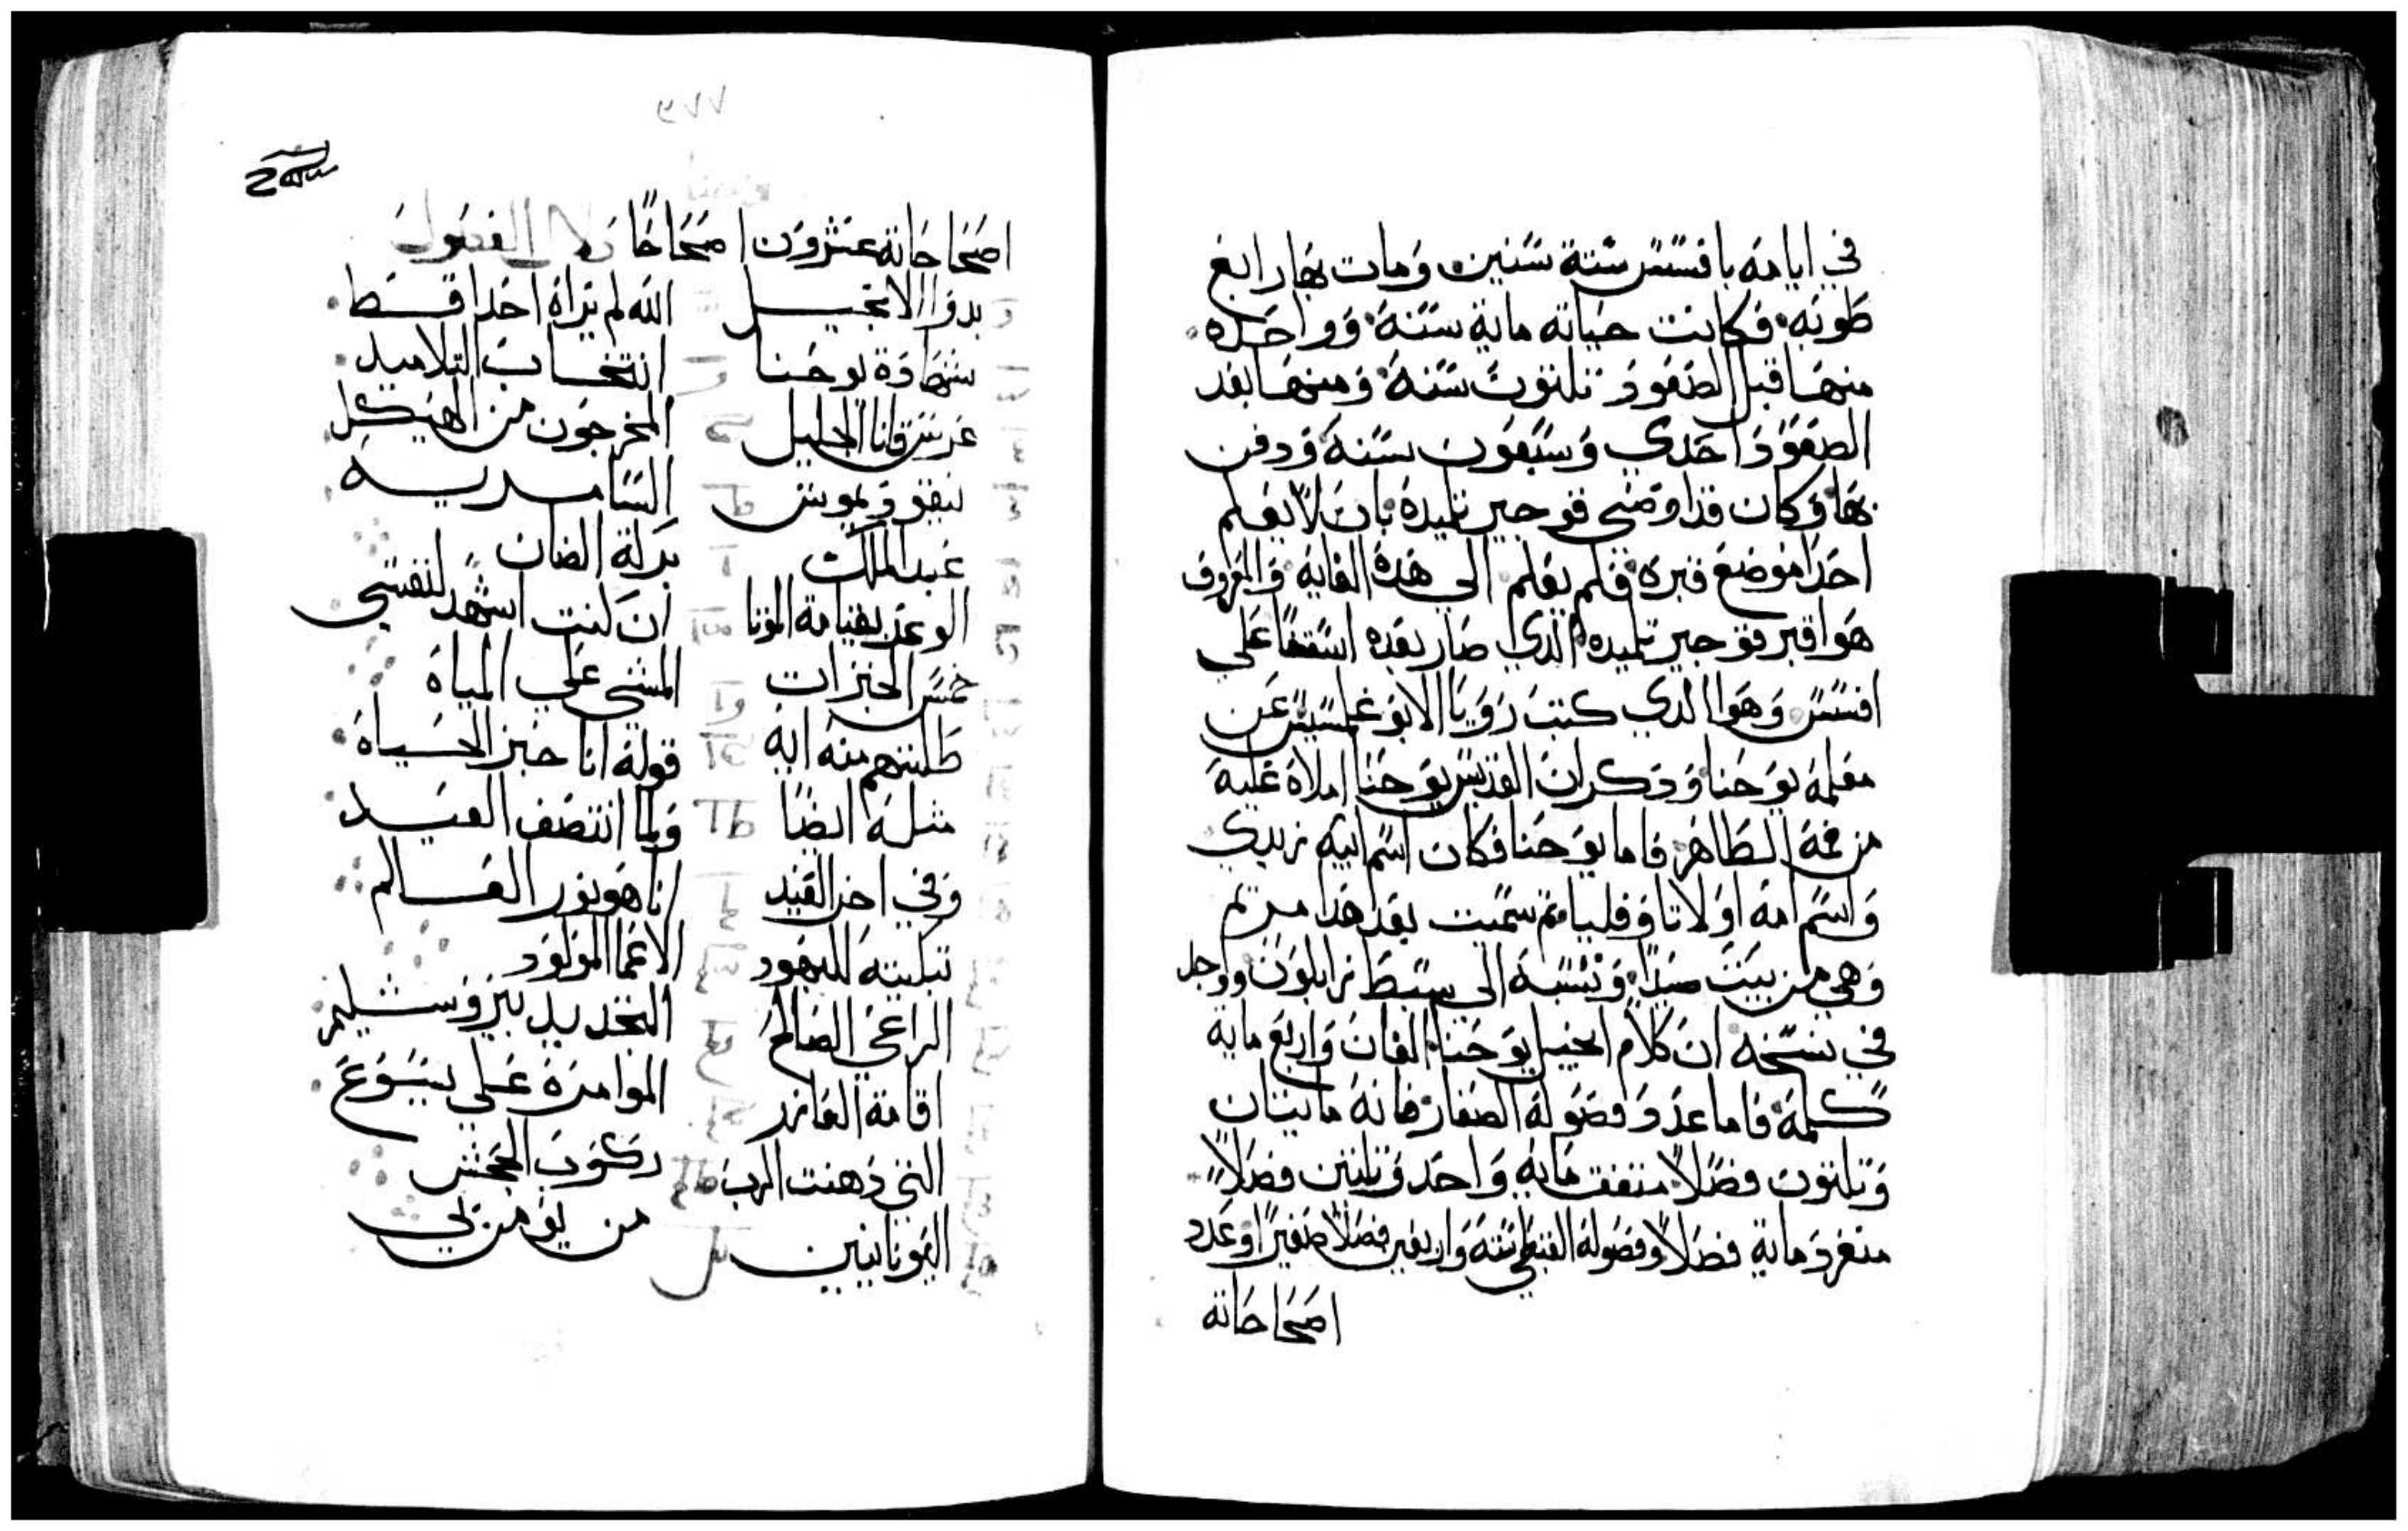 في ايامه بافسس ستة سنين ومات بها رابع
طوبه وكانت حياته ماية سنة وواحده
منها قبل الصعود تلتون سنة ومنها بعد
الصعود احدي وسبعون سنة ودفن
بها وكان قد اوصي فوجير تلميده بان لا يعلم
احدا موضع قبره فلم يعلم الي هده الغاية والمعروف
هوا قبر فوجير تلميده الدي صار بعده اسقفا علي
افسس وهوا الدي كتب رويا الابوغلمسيس عن
معلمه يوحنا ودكر ان القديس يوحنا املاه عليه
من فمه الطاهر فاما يوحنا فكان اسم ابيه زبدي
واسم امه اولا تاوفليا تم سميت بعد هدا مريم
وهي من بيت صيدا ونسبه الي سبط زابلون ووجد
في نسخه ان كلام انجيل يوحنا الفان واربع ماية
كلمة فاما عدد فصوله الصغار فانه مايتان
وتلتون فصلا متفقت ماية واحد وتلتين فصلا
منفرد ماية فصلا وفصوله القبطي ستة واربعين فصلا صغيرا وعدد
اصحاحاته
٧٦٩
اصحاحاته عشرون اصحاحا دلال الفصول
بدوا الانجيل
الله لم يراه احدا قط
شهادة يوحنا
انتخاب التلاميد
عرس قانا الجليل
المخرجون من الهيكل
نيقوديموس
السامريه
عبد الملك
بركة الضان
الوعد بقيامة الموتا
ان كنت اشهد لنفسي
خمس الخبزات
المشي علي المياه
طلبتهم منه ايه
قوله انا خبز الحياه
مثله ايضا
ولما انتصف العيد
وفي اخر العيد
انا هو نور العالم
تبكيته لليهود
الاعما المولود
الراعي الصالح
التجديد بيروشليم
اقامة العازر
الموامرة علي يسوع
التي دهنت الرب
ركوب الجحش
اليونانيين
من يومن بي